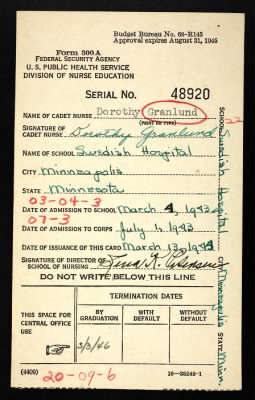 Budget Bureau No. 68-R145
Approval expires August 31, 1945
Form 300A
FEDERAL SECURITY AGENCY
U. S. PUBLIC HEALTH SERVICE
DIVISION OF NURSE EDUCATION
SERIAL NO. 48920
NAME OF CADET NURSE Dorothy Granlund
(PRINT OR TYPE)
SIGNATURE OF
CADET NURSE Dorothy Granlund
NAME OF SCHOOL Swedish Hospital
CITY Minneapolis
STATE Minnesota
03-04-3
DATE OF ADMISSION TO SCHOOL March 4, 1943
07-3
DATE OF ADMISSION TO CORPS July 1, 1943
DATE OF ISSUANCE OF THIS CARD March 13, 1944
SIGNATURE OF DIRECTOR
OF SCHOOL OF NURSING
DO NOT WRITE BELOW THIS LINE
THIS SPACE FOR
CENTRAL OFFICE
USE
TERMINATION DATES
BY
GRADUATION
WITH
DEFAULT
WITHOUT
DEFAULT
3/3/46
(4409)
20-09-6
16-38249-1
SCHOOL Swedish Hospital CITY Minneapolis STATE Minn.
22